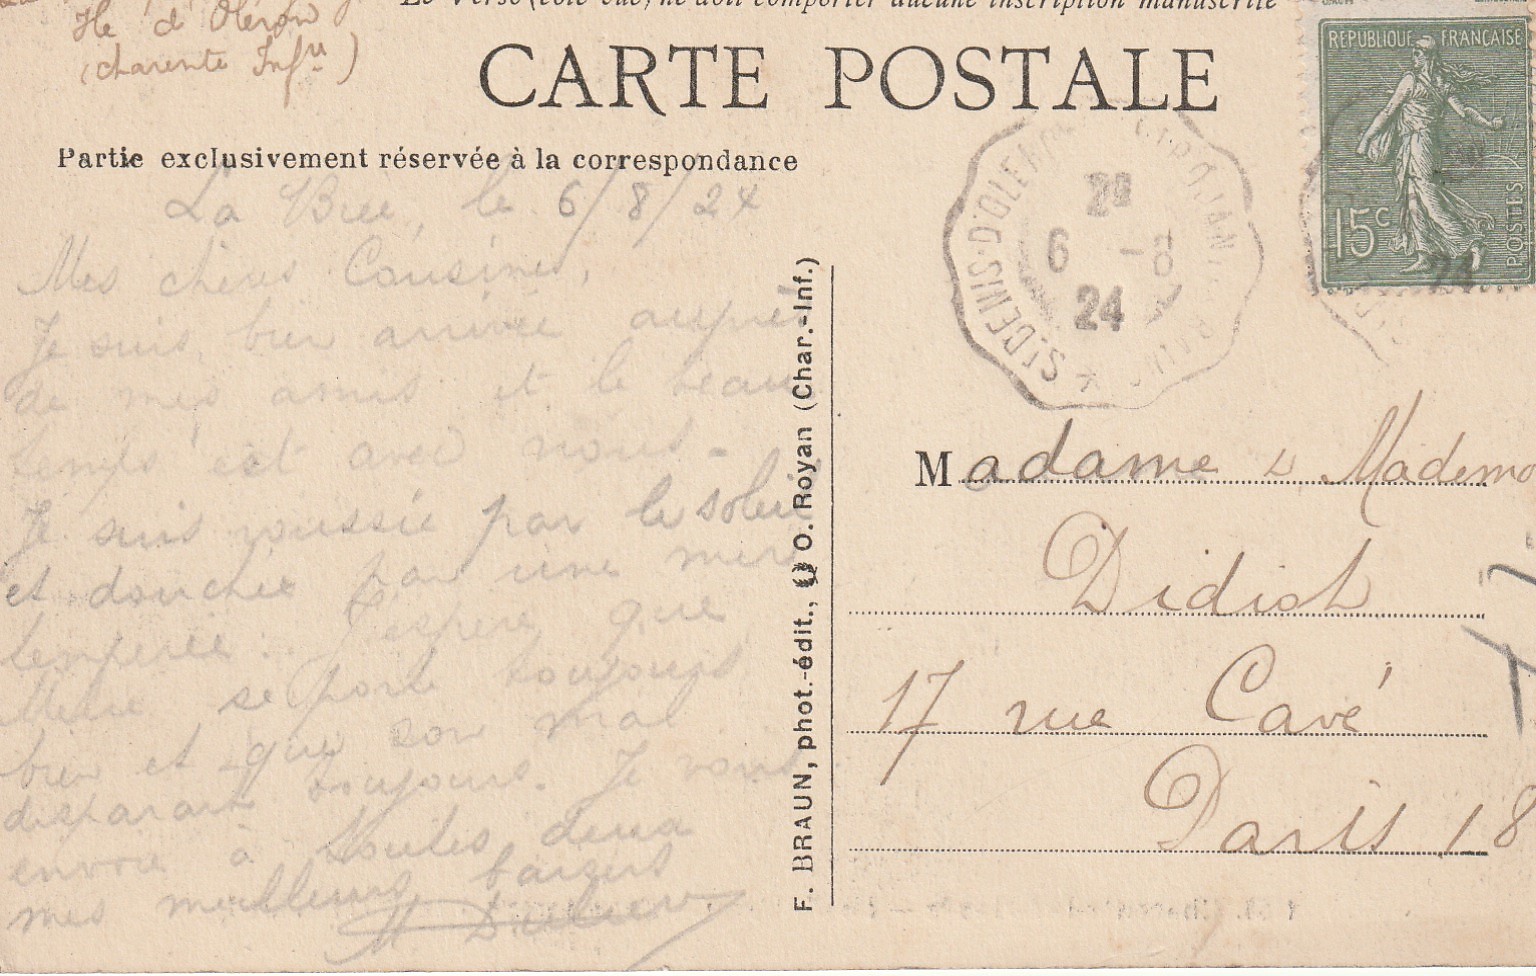 Le Verso (côté vue) ne doit comporter aucune inscription manuscrite
Ile d'Oléron
(Charente Infre)
CARTE POSTALE
REPUBLIQUE FRANÇAISE
15c
POSTES
Partie exclusivement réservée à la correspondance
ST DENIS-D'OLERON
6 -8
24
La Brée, le 6/8/24
Mes chères Cousines,
Je suis bien arrivée auprès
de mes amis et le beau
temps est avec nous.
Je suis roussie par le soleil
et douchée par une mer
tempérée. J'espère que
se porte toujours
bien et que son mal
disparait toujours. Je vous
envoie à toutes deux
mes meilleurs baisers
F. BRAUN, phot.-édit., O. Royan (Char.-Inf.)
Madame & Mademo
Didish
17 rue Cavé
Paris 18